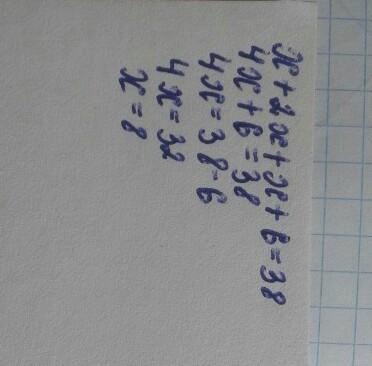 x+2x+x+6=38
4x+6=38
4x=38-6
4x=32
x=8